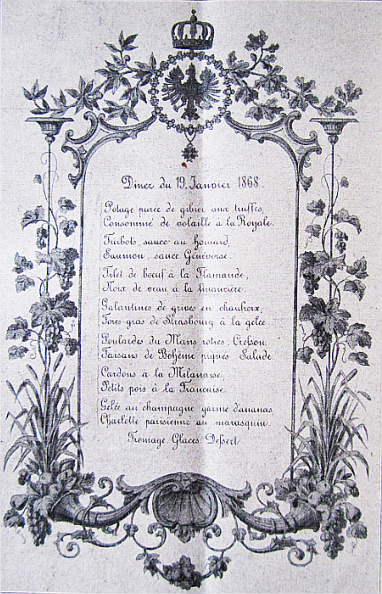 Dîner du 19. Janvier 1868.
Potage purée de gibier aux truffes,
Consommé de volaille à la Royale.
Turbots, sauce au homard,
Saumon, sauce Génevoise.
Filet de boeuf à la Flamande,
Noix de veau à la financière.
Galantines de grives en chaufroix,
Foies-gras de Strasbourg à la gelée.
Poulardes du Mans roties, Cresson.
Faisans de Bohême piqués Salade.
Cardons à la Milanaise.
Petits pois à la Française.
Gelée au champagne garnie d'ananas.
Charlotte parisienne au marasquin.
Fromage, Glaces, Dessert.